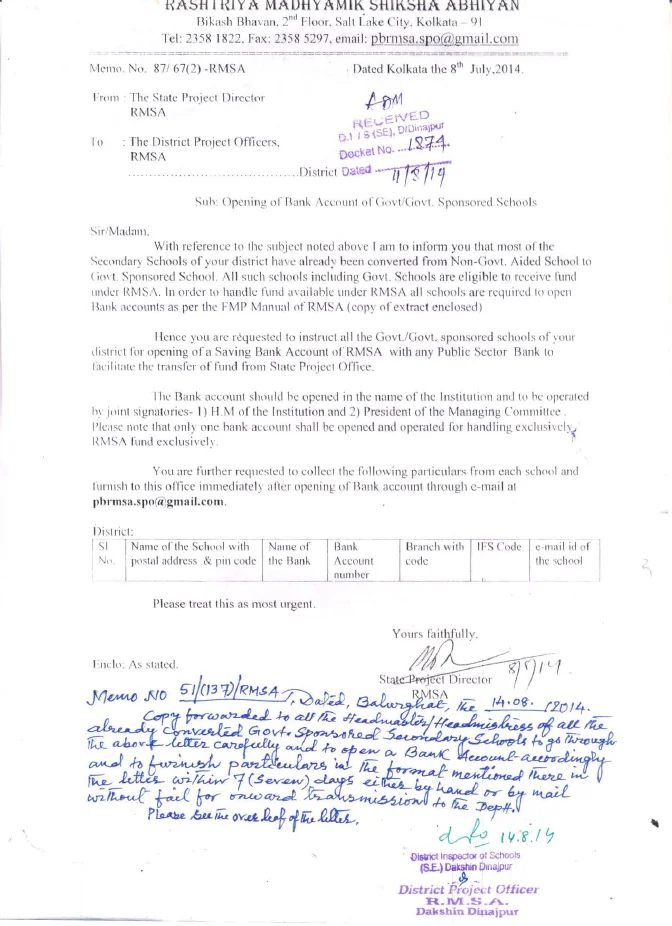 RASHTRIYA MADHYAMIK SHIKSHA ABHIYAN
Bikash Bhavan, 2nd Floor, Salt Lake City, Kolkata – 91
Tel: 2358 1822, Fax: 2358 5297, email: pbrmsa.spo@gmail.com
Memo. No. 87/ 67(2) -RMSA Dated Kolkata the 8th July,2014.
From : The State Project Director
RMSA
ADM
RECEIVED
D.I / S (SE), D/Dinajpur
Docket No. ...1874.
To : The District Project Officers,
RMSA
.......................................District Dated
Sub: Opening of Bank Account of Govt/Govt. Sponsored Schools
Sir/Madam,
With reference to the subject noted above I am to inform you that most of the
Secondary Schools of your district have already been converted from Non-Govt. Aided School to
Govt. Sponsored School. All such schools including Govt. Schools are eligible to receive fund
under RMSA. In order to handle fund available under RMSA all schools are required to open
Bank accounts as per the FMP Manual of RMSA (copy of extract enclosed)
Hence you are requested to instruct all the Govt./Govt. sponsored schools of your
district for opening of a Saving Bank Account of RMSA with any Public Sector Bank to
facilitate the transfer of fund from State Project Office.
The Bank account should be opened in the name of the Institution and to be operated
by joint signatories- 1) H.M of the Institution and 2) President of the Managing Committee .
Please note that only one bank account shall be opened and operated for handling exclusively
RMSA fund exclusively.
You are further requested to collect the following particulars from each school and
furnish to this office immediately after opening of Bank account through e-mail at
pbrmsa.spo@gmail.com.
District:
Sl No. Name of the School with postal address & pin code Name of the Bank Bank Account number Branch with code IFS Code e-mail id of the school
Please treat this as most urgent.
Yours faithfully,
Enclo: As stated.
State Project Director
RMSA
Memo NO 51/(137)/RMSA, Dated, Balurghat, the 14.08. /2014.
Copy forwarded to all the Headmaster/Headmistress of all the
already converted Govt. Sponsored Secondary Schools to go through
the above letter carefully and to open a Bank Account accordingly
and to furnish particulars in the format mentioned there in
the letter within 7 (seven) days either by hand or by mail
without fail for onward transmission to the Deptt.
Please see the over leaf of the letter.
14.8.14
District Inspector of Schools
(S.E.) Dakshin Dinajpur
District Project Officer
R.M.S.A.
Dakshin Dinajpur